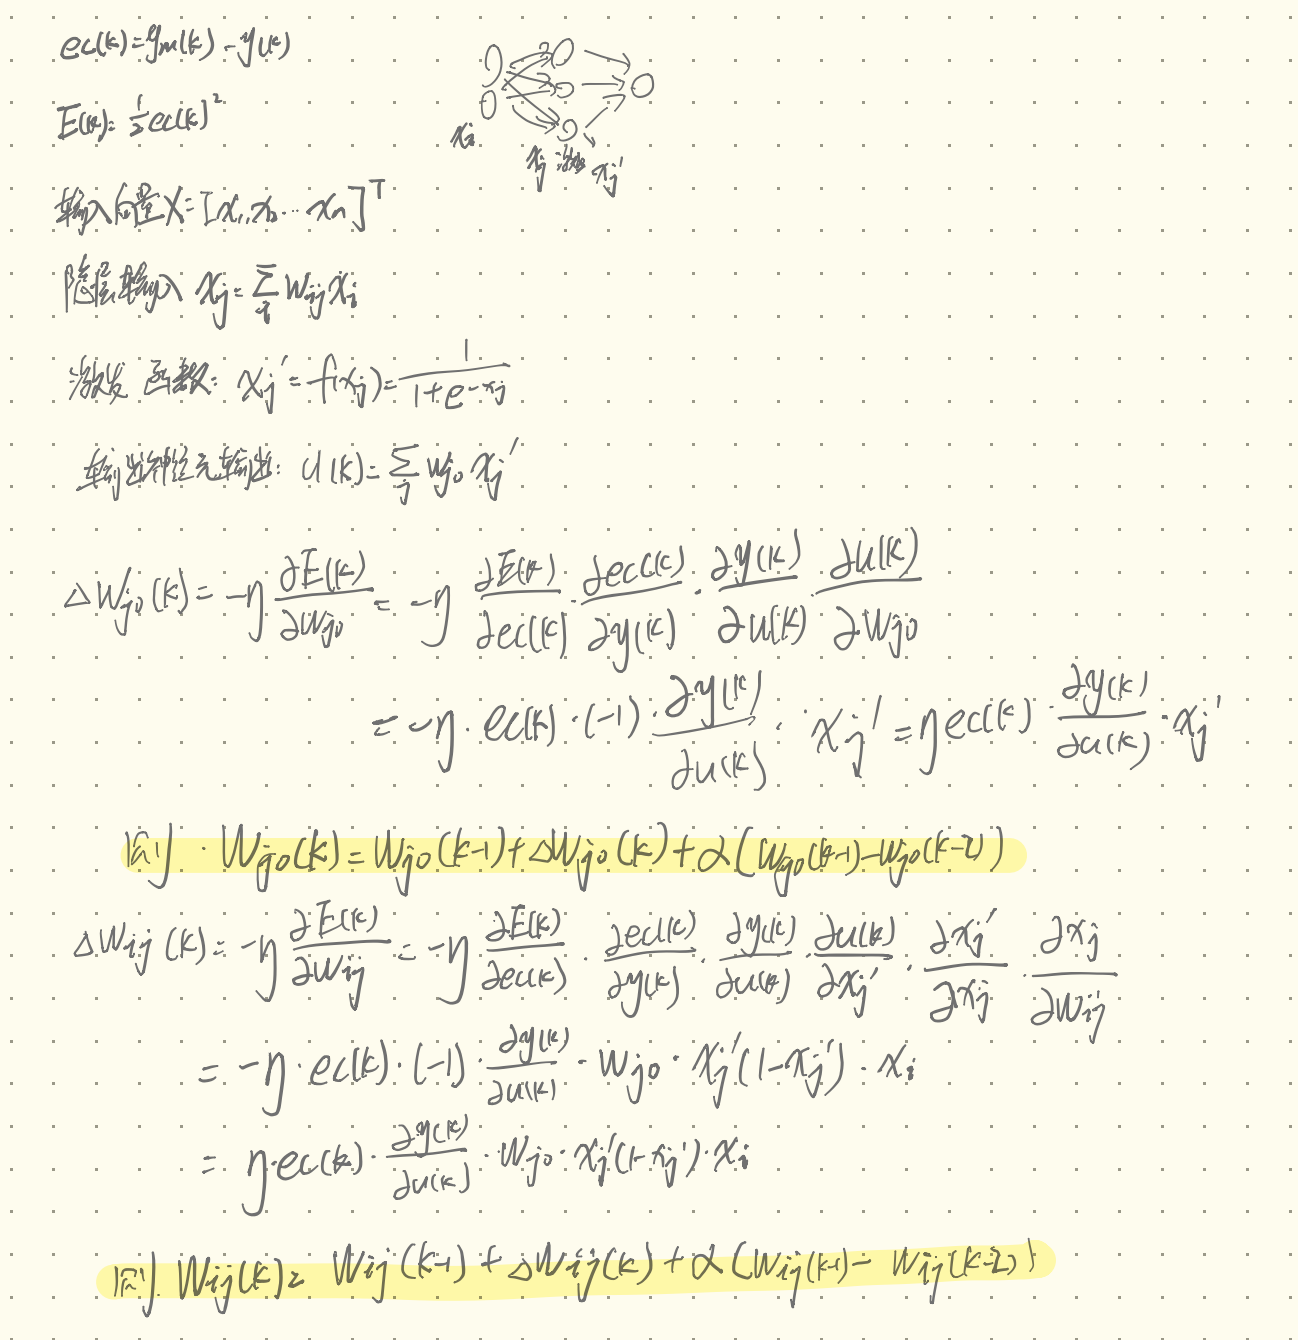 ec(k)=ym(k)-y(k)
E(k)=½ec(k)²
xi
xj 激发 xj'
输入向量X=[x1,x2…xn]^T
隐层输入 xj=∑_i wij xi
激发函数: xj'=f(xj)=1/(1+e^-xj)
输出神经元输出: u(k)=∑_j wjo xj'
△wjo(k)=-η ∂E(k)/∂wjo = -η ∂E(k)/∂ec(k) · ∂ec(k)/∂y(k) · ∂y(k)/∂u(k) · ∂u(k)/∂wjo
=-η·ec(k)·(-1)·∂y(k)/∂u(k)·xj'=η ec(k)·∂y(k)/∂u(k)·xj'
则 wjo(k)=wjo(k-1)+△wjo(k)+α(wjo(k-1)-wjo(k-2))
△wij(k)=-η ∂E(k)/∂wij=-η ∂E(k)/∂ec(k) · ∂ec(k)/∂y(k) · ∂y(k)/∂u(k) · ∂u(k)/∂xj' · ∂xj'/∂xj · ∂xj/∂wij
=-η·ec(k)·(-1)·∂y(k)/∂u(k)·wjo·xj'(1-xj')·xi
=η·ec(k)·∂y(k)/∂u(k)·wjo·xj'(1-xj')·xi
则 wij(k)=wij(k-1)+△wij(k)+α(wij(k-1)-wij(k-2))